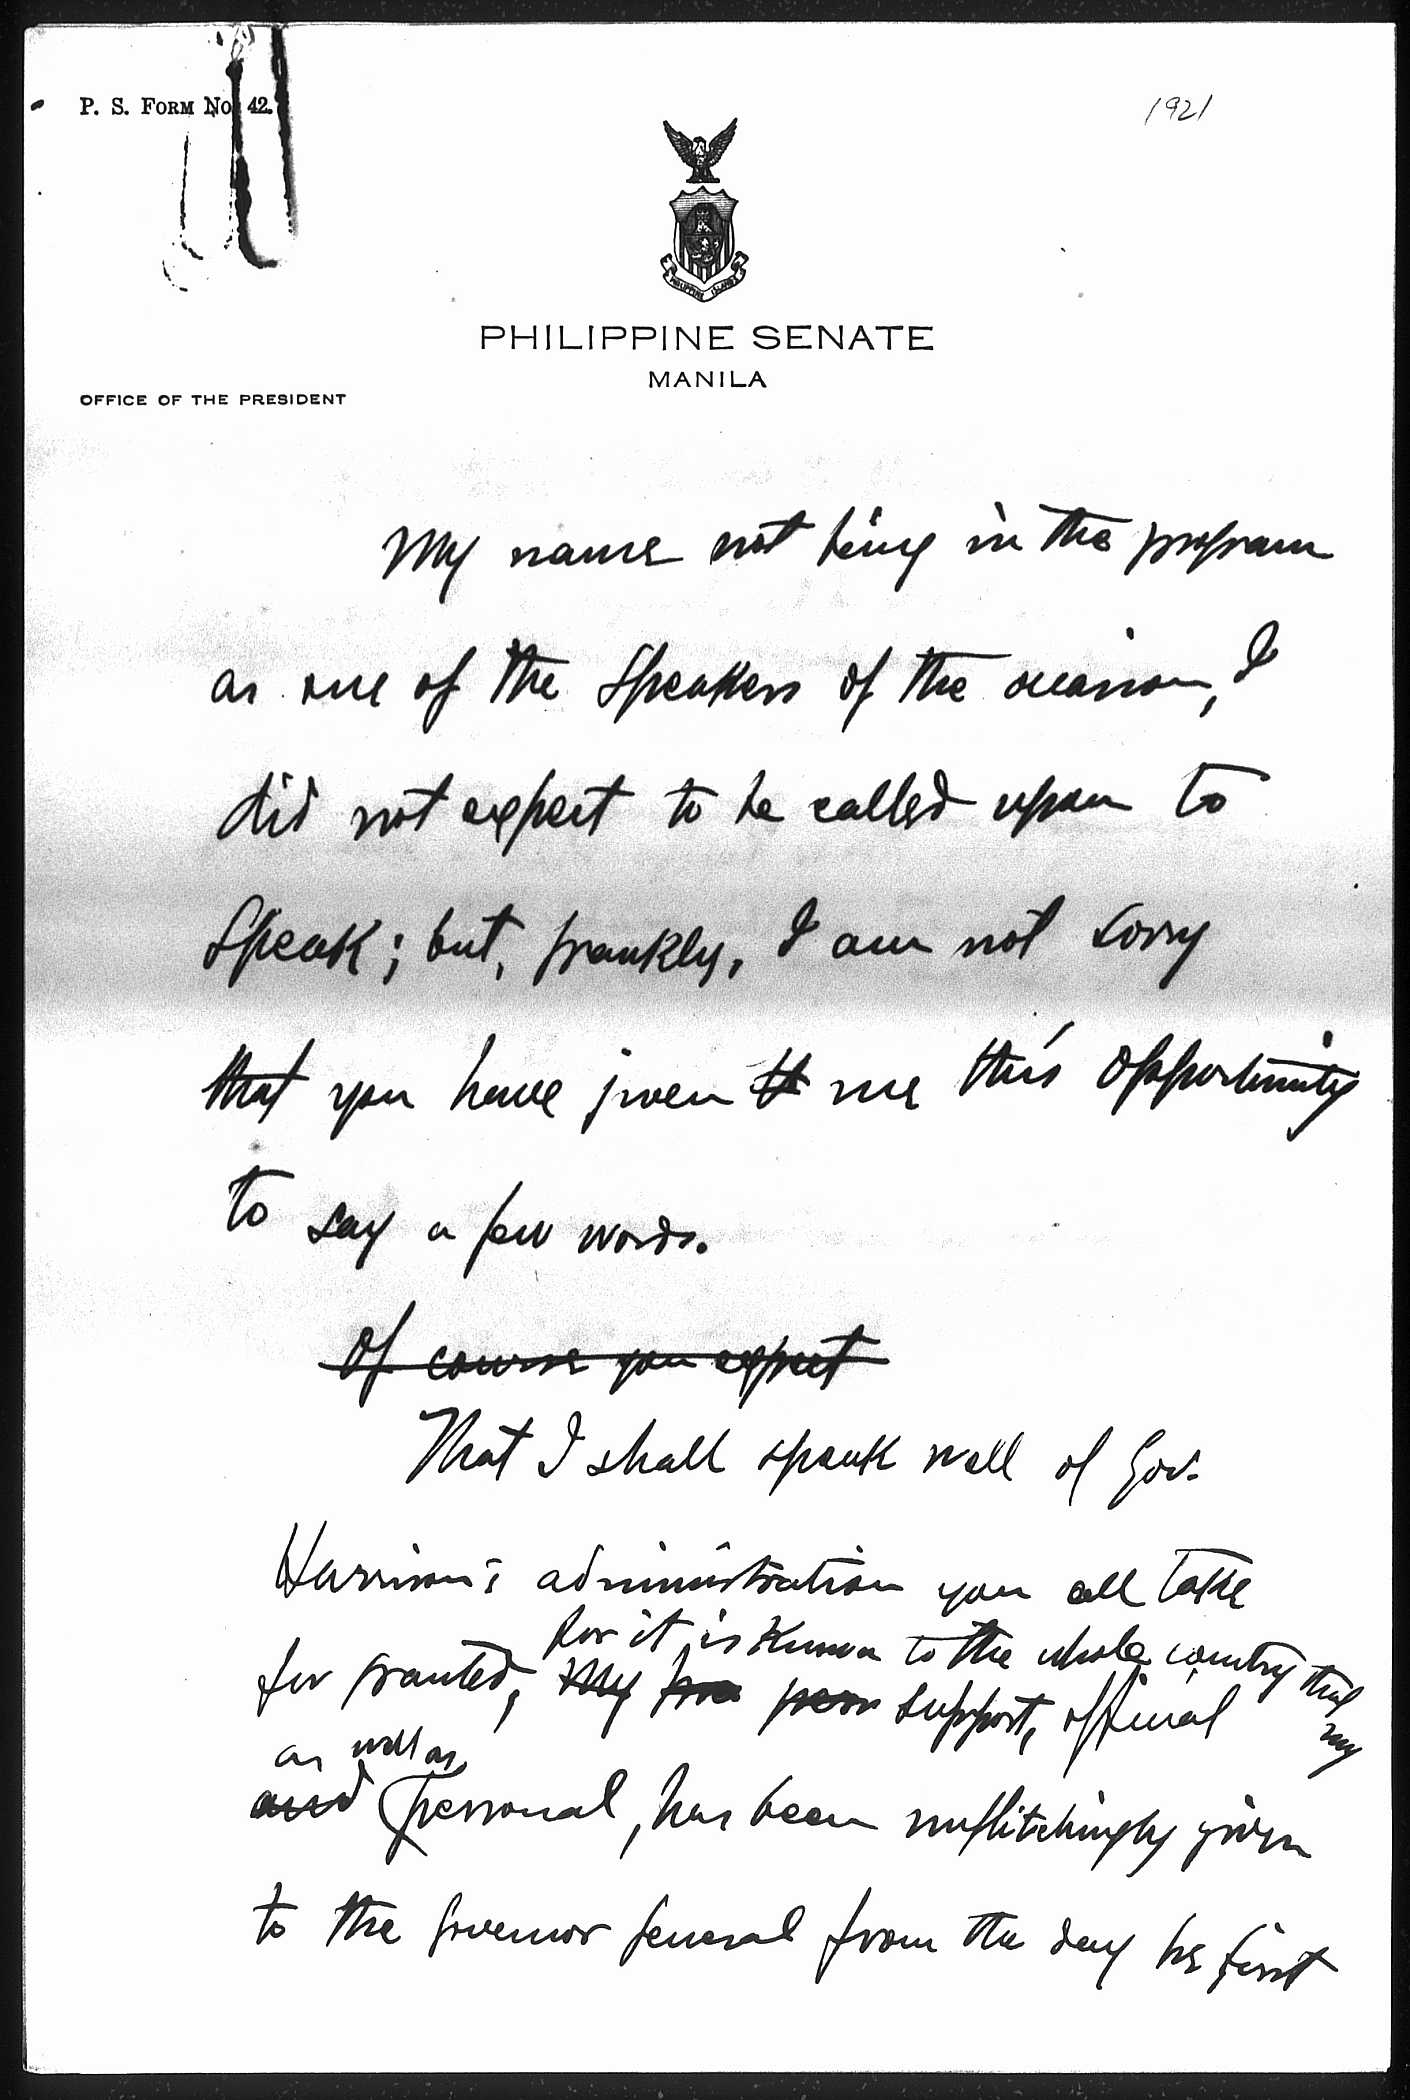 P. S. FORM No. 42.
1921
PHILIPPINE ISLANDS
PHILIPPINE SENATE
MANILA
OFFICE OF THE PRESIDENT
My name not being in the program
as one of the speakers of the occasion, I
did not expect to be called upon to
speak; but, frankly, I am not sorry
that you have given me this opportunity
to say a few words.
Of course you expect
That I shall speak well of Gov.
Harrison's administration you all take
for it is known to the whole country that my
for granted, My pers support, official
as well as
and personal, has been unflitchingly given
to the governor general from the day he first